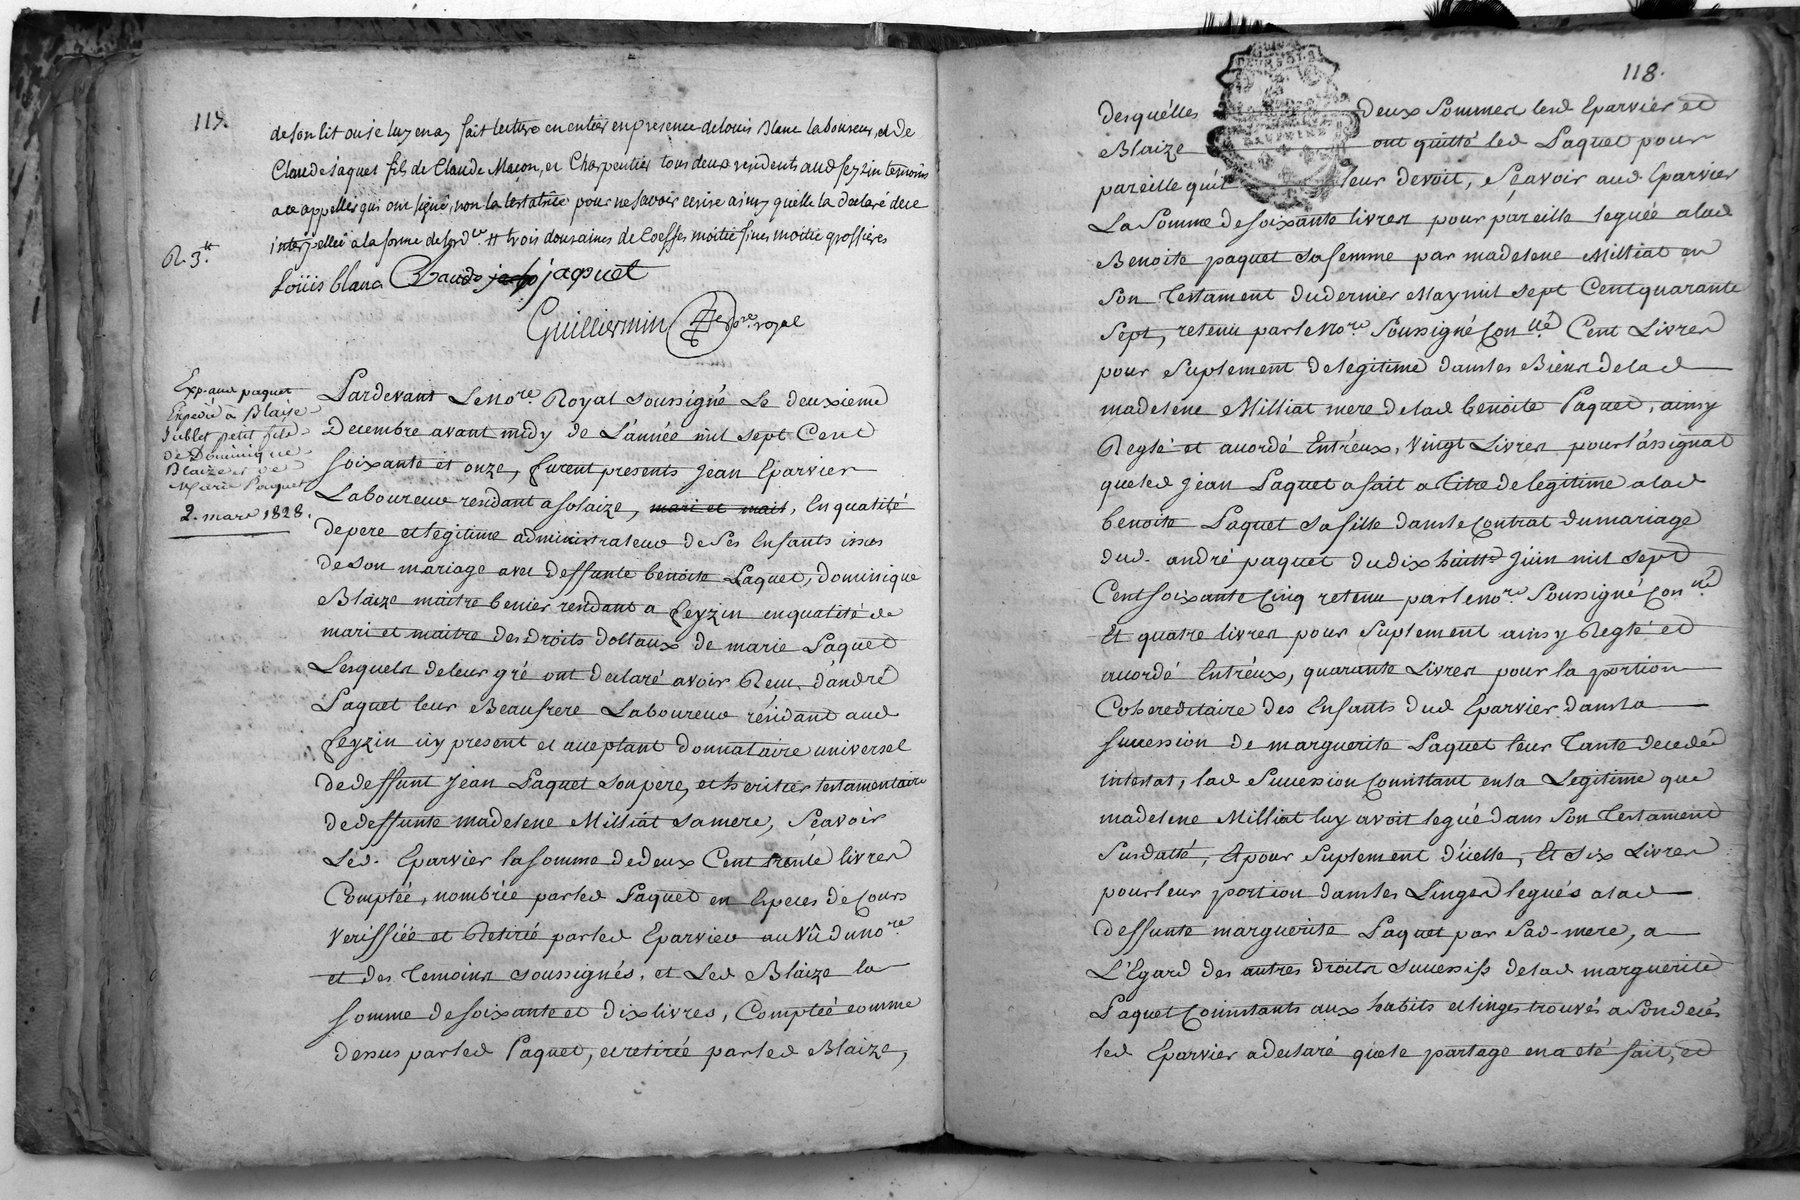 117.
de son lit ou je luy en ay fait lecture en entier en presence de louis Blanc laboureur, et de
Claude jaquet fils de Claude Maçon, et Charpentier tous deux residents aud feyzin temoins
a ce appellés qui ont signé, non la testatrice pour ne savoir ecrire ainsy quelle la declaré de ce
interpellée a la forme de lord.ce # trois douzaines de Coeffes moitié fines moitié grossieres
R. 3.#
Loüis blanc Claude jaquet
Guilliermin No.re royal
Exp. aud paquet
Expedié à Blaise
Jublet petit fils
de Dominique
Blaize et de
Marie Paquet
2. mars 1828.
Pardevant Le No.re Royal soussigné Le deuxieme
Decembre avant midy de L'année mil sept Cent
soixante et onze, furent presents Jean Eparvier
Laboureur residant a solaize, mari et mait, En qualité
de pere et legitime administrateur de ses Enfants issus
de son mariage avec deffunte benoite Paquet, Dominique
Blaize maitre benier residant a feyzin en qualité de
mari et maitre des Droits dottaux de marie Paquet
Lesquels de leur gré ont declaré avoir Reçu d'andré
Paquet leur Beaufrere Laboureur résidant aud
feyzin icy present et acceptant Donnataire universel
de deffunt Jean Paquet son pere, et heritier testamentaire
de deffunte madelene Milliat sa mere, Sçavoir
Léd. Eparvier la somme de deux Cent trente livres
Comptée, nombrée par led Paquet en Especes de Cours
Veriffiée et Retirée par led Eparvier au Vû du no.re
et des Temoins soussignés, et Led Blaize la
somme de soixante et dix livres, Comptée comme
dessus par led Paquet, et retirée par led Blaize,
118.
Desquelles deux Sommes lesd Eparvier et
Blaize ont quitté led Paquet pour
pareille qu'il leur devoit, Sçavoir aud Eparvier
La Somme de soixante livres pour pareille leguée a lad
Benoite paquet sa femme par madelene Milliat en
son Testament du dernier May mil sept Cent quarante
sept, retenu par le No.re Soussigné Con.llé Cent Livres
pour Suplement de legitime dans les Biens de lad
madelene Milliat mere de lad benoite Paquet, ainsy
Reglé et accordé Entréux, Vingt Livres pour l'assignat
que led Jean Paquet a fait a Titre de legitime a lad
benoite Paquet sa fille dans le Contrat du mariage
dud. andré paquet du dix huitt. Juin mil sept
Cent soixante Cinq retenu par le no.re Soussigné Con.llé
Et quatre livres pour Suplement ainsy Reglé et
accordé Entréux, quarante Livres pour la portion
Cohereditaire des Enfants dud Eparvier dans la
succession de marguerite Paquet leur Tante decedée
intestat, lad Succession Consistant en la Legitime que
madelene Milliat luy avoit legué dans son Testament
Susdatté, Et pour Suplement d'icelle, Et Six Livres
pour leur portion dans les Linges legués a lad
deffunte marguerite Paquet par Sad. mere, a
L'Egard des autres droits successifs de lad marguerite
Paquet Consistants aux habits et linges trouvés a son decés
led Eparvier a declaré que le partage en a eté fait, et